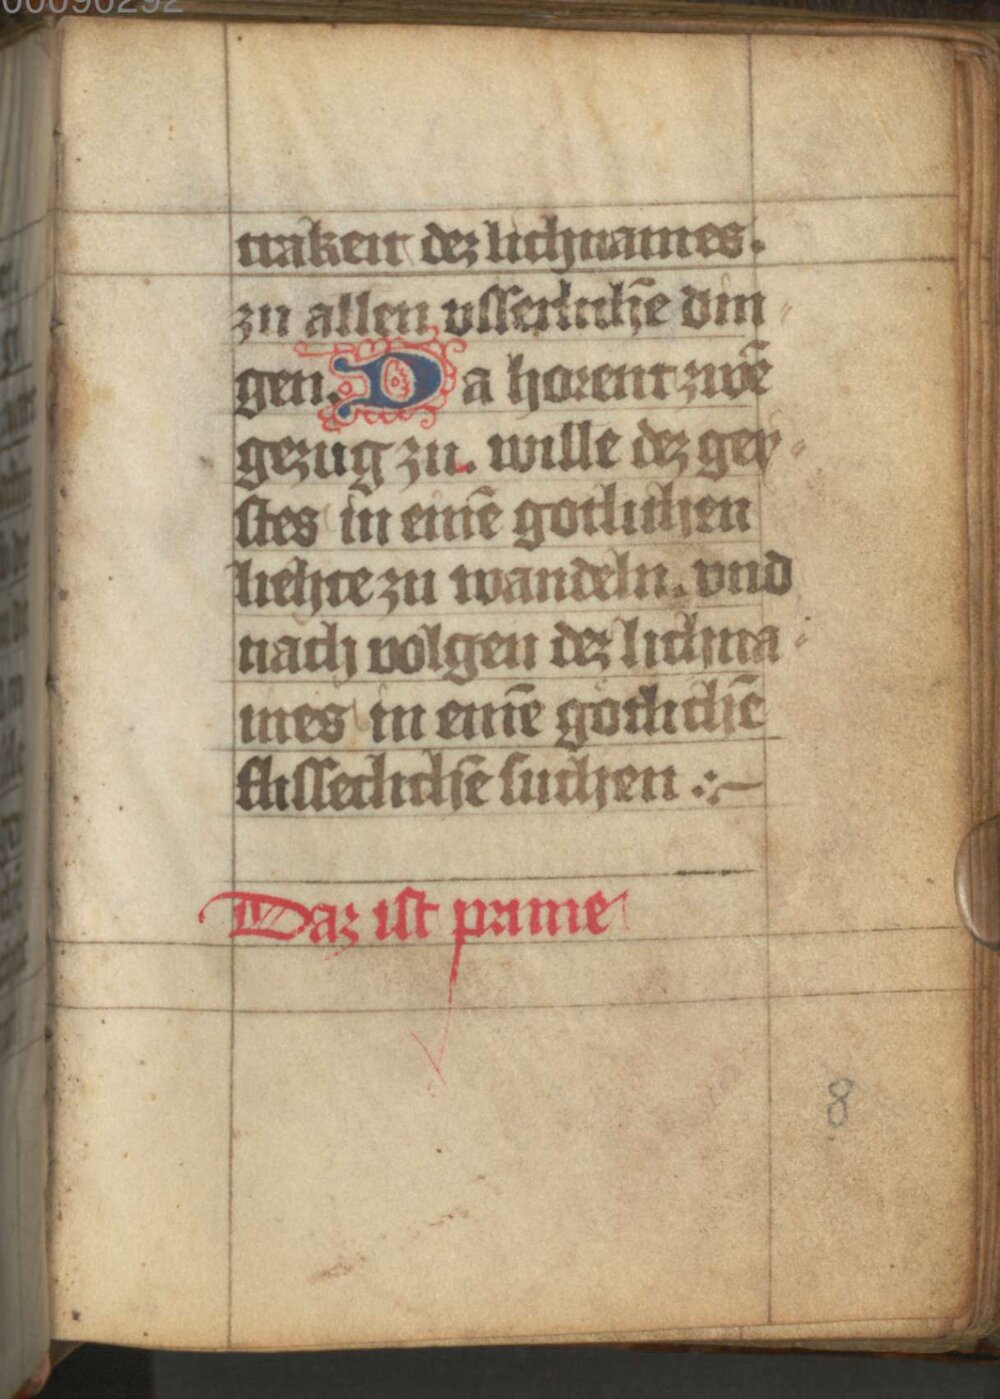 00090292
trakeit dez lichnames.
zu allen vsserlichē din⸗
gen. Da horent zwē
gezug zu. wille dez gey⸗
stes in einē gotlichen
liehte zu wandeln. vnd
nach volgen dez lichna⸗
mes in einē gotlichē
flisseclichē suchen :~
Daz ist prime
8